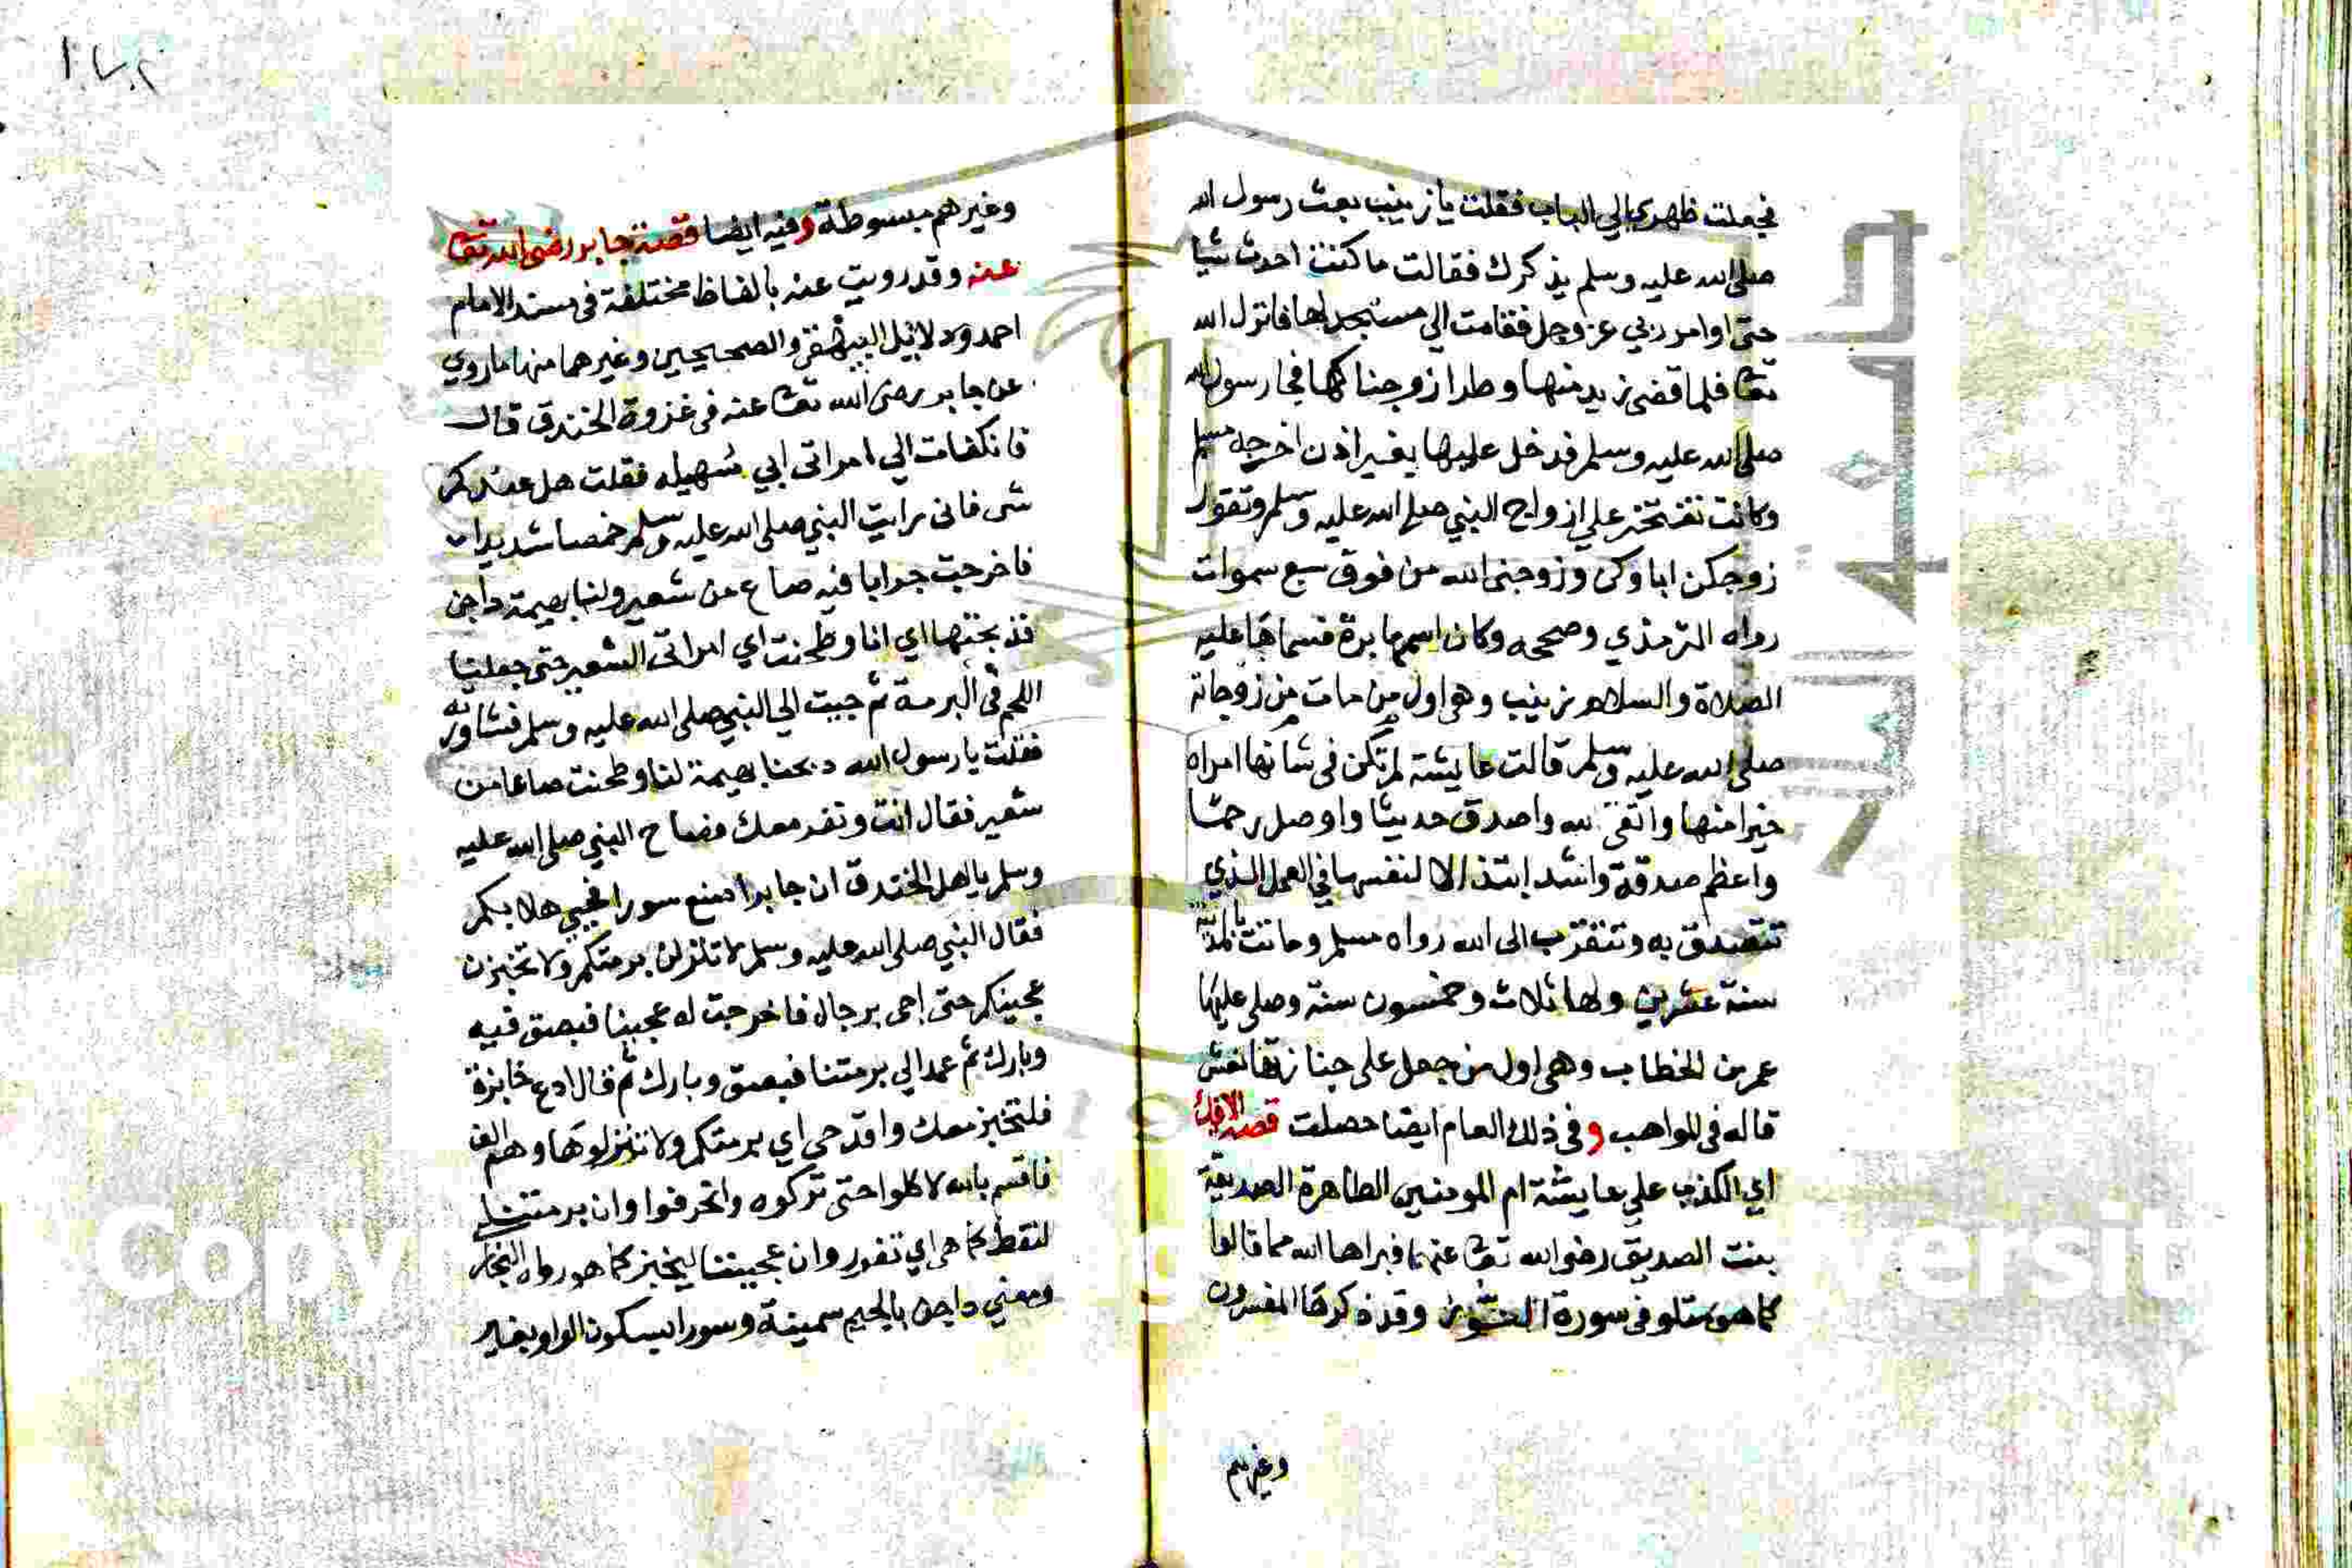 فجعلت ظهري الي الباب فقلت يا زينب بعث رسول الله
صلى الله عليه وسلم يذكرك فقالت ما كنت احدث شيا
حتى اوامر ربي عز وجل فقامت الي مسجد لها فانزل الله
تعا فلما قضى زيد منها وطرا زوجناكها فجا رسول الله
صلى الله عليه وسلم فدخل عليها بغير اذن اخرجه مسلم
وكانت تفتخر علي ازواج النبي صلى الله عليه وسلم وتقول
زوجكن اباوكن وزوجني الله من فوق سبع سموات
رواه الترمذي وصححه وكان اسمها برة فسماها عليه
الصلاة والسلام زينب وهي اول من مات من زوجاته
صلى الله عليه وسلم قالت عايشة لم تكن في شانها امراه
خيرا منها واتقى لله واصدق حديثا واوصل رحما
واعظم صدقة واشد ابتذالا لنفسها في العمل الذي
تتصدق به وتتقرب الى الله رواه مسلم وماتت بالمدينة
سنة عشرين ولها ثلاث وخمسون سنة وصلى عليها
عمر بن الخطاب وهي اول من جعل على جنازتها نعش
قاله في المواهب وفي ذلك العام ايضا حصلت قصة الافك
اي الكذب علي عايشة ام المومنين الطاهرة الصديقة
بنت الصديق رضي الله تعا عنهما فبراها الله مما قالوا
كما هو متلو في سورة النور وقد ذكرها المفسرون
وغيرهم
١٤٢
وغيرهم مبسوطة وفيه ايضا قصة جابر رضي الله تعا
عنه وقد رويت عنه بالفاظ مختلفة في مسند الامام
احمد ودلايل البيهقي والصحيحين وغيرهما منها ما روي
عن جابر رضى الله تعا عنه في غزوة الخندق قال
فانكفات الي امراتي ابي سهيله فقلت هل عندكم
شى فاني رايت النبي صلى الله عليه وسلم خمصا شديدا
فاخرجت جرابا فيه صاع من شعير ولنا بهيمة داجن
فذبحتها اي انا وطحنت اي امراتي الشعير حتى جعلنا
اللحم في البرمة ثم جيت الي النبي صلى الله عليه وسلم فشاورته
فقلت يا رسول الله ذبحنا بهيمة لنا وطحنت صاعا من
شعير فقال انت ونفر معك فصاح النبي صلى الله عليه
وسلم يا اهل الخندق ان جابرا صنع سورا فحيي هلا بكم
فقال النبي صلى الله عليه وسلم لا تنزلن برمتكم ولا تخبزن
عجينكم حتى اجي برجال فاخرجت له عجينا فبصق فيه
وبارك ثم عمد الي برمتنا فبصق وبارك ثم قال ادع خابزة
فلتخبز معك واقدحي اي برمتكم ولا تنزلوها وهم الف
فاقسم بالله لاكلوا حتى تركوه وانحرفوا وان برمتنا
لتغط كما هي اي تفور وان عجيننا ليخبز كما هو رواه البخار
ومعني داجن بالجيم سمينة وسورا بسكون الواو بغير